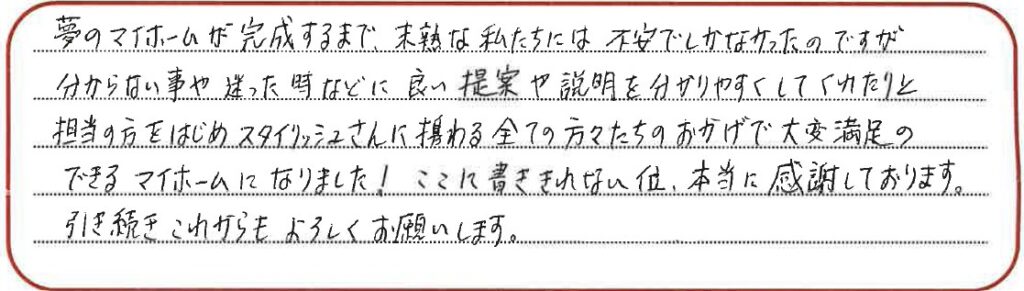 夢のマイホームが完成するまで、未熟な私たちには不安でしかなかったのですが
分からない事や迷った時などに良い提案や説明を分かりやすくしてくれたりと
担当の方をはじめスタイリッシュさんに携わる全ての方々たちのおかげで大変満足の
できるマイホームになりました！ここに書ききれない位、本当に感謝しております。
引き続きこれからもよろしくお願いします。